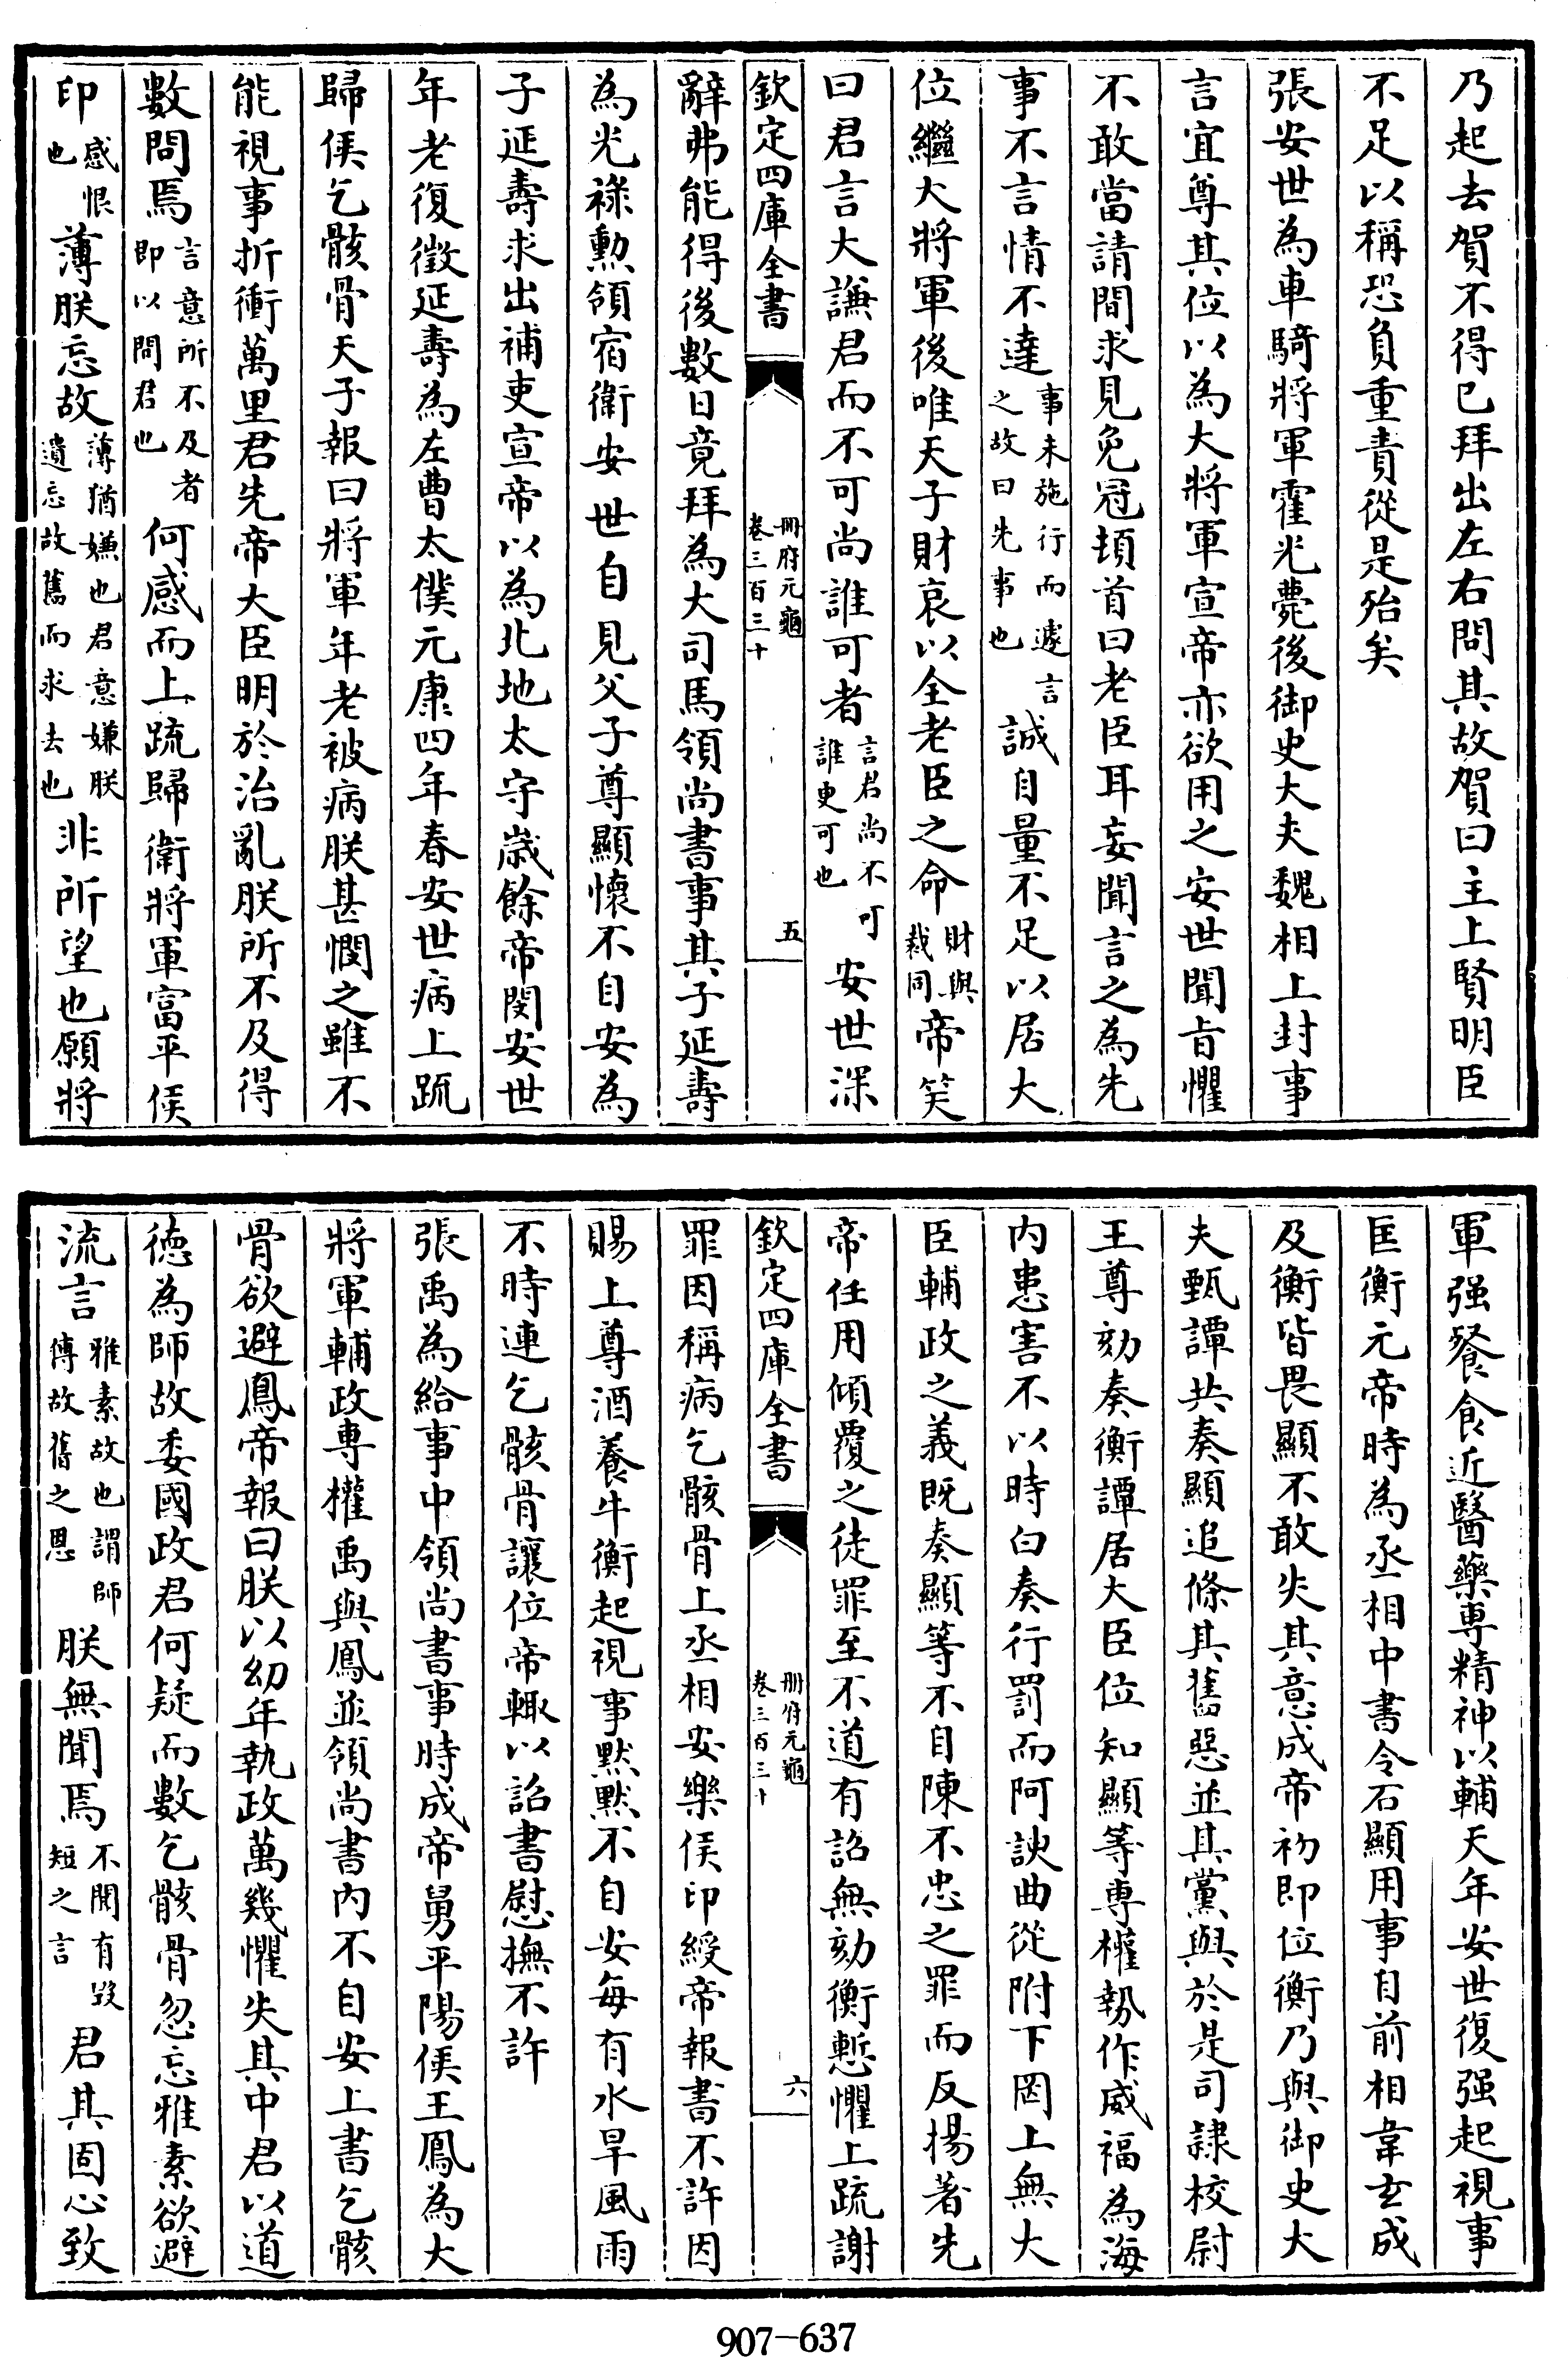 乃起去賀不得已拜出左右問其故賀曰主上賢明臣
不足以稱恐負重責從是殆矣
張安世為車騎將軍霍光薨後御史大夫魏相上封事
言宜尊其位以為大將軍宣帝亦欲用之安世聞旨懼
不敢當請間求見免冠頓首曰老臣耳妄聞言之為先
事不言情不達事未施行而遽言之故曰先事也誠自量不足以居大
位繼大將軍後唯天子財哀以全老臣之命財與裁同帝笑
曰君言大謙君而不可尚誰可者言君尚不可誰更可也安世深
欽定四庫全書 冊府元龜卷三百三十 五
辭弗能得後數日竟拜為大司馬領尚書事其子延壽
為光祿勲領宿衛安世自見父子尊顯懷不自安為
子延壽求出補吏宣帝以為北地太守歲餘帝閔安世
年老復徵延壽為左曹太僕元康四年春安世病上疏
歸侯乞骸骨天子報曰將軍年老被病朕甚憫之雖不
能視事折衝萬里君先帝大臣明於治亂朕所不及得
數問焉言意所不及者即以問君也何感而上疏歸衛將軍富平侯
印感恨也薄朕忘故薄猶嫌也君意嫌朕遺忘故舊而求去也非所望也願將
軍强餐食近醫藥專精神以輔天年安世復强起視事
匡衡元帝時為丞相中書令石顯用事自前相韋玄成
及衡皆畏顯不敢失其意成帝初即位衡乃與御史大
夫甄譚共奏顯追條其舊惡並其黨與於是司隸校尉
王尊劾奏衡譚居大臣位知顯等專權勢作威福為海
内患害不以時白奏行罰而阿諛曲從附下罔上無大
臣輔政之義既奏顯等不自陳不忠之罪而反揚著先
帝任用傾覆之徒罪至不道有詔無劾衡慙懼上疏謝
欽定四庫全書 冊府元龜卷三百三十 六
罪因稱病乞骸骨上丞相安樂侯印綬帝報書不許因
賜上尊酒養牛衡起視事默默不自安每有水旱風雨
不時連乞骸骨讓位帝輒以詔書慰撫不許
張禹為給事中領尚書事時成帝舅平陽侯王鳳為大
將軍輔政專權禹與鳳並領尚書内不自安上書乞骸
骨欲避鳳帝報曰朕以幼年執政萬幾懼失其中君以道
德為師故委國政君何疑而數乞骸骨忽忘雅素欲避
流言雅素故也謂師傅故舊之恩朕無聞焉不聞有毀短之言君其固心致
907-637